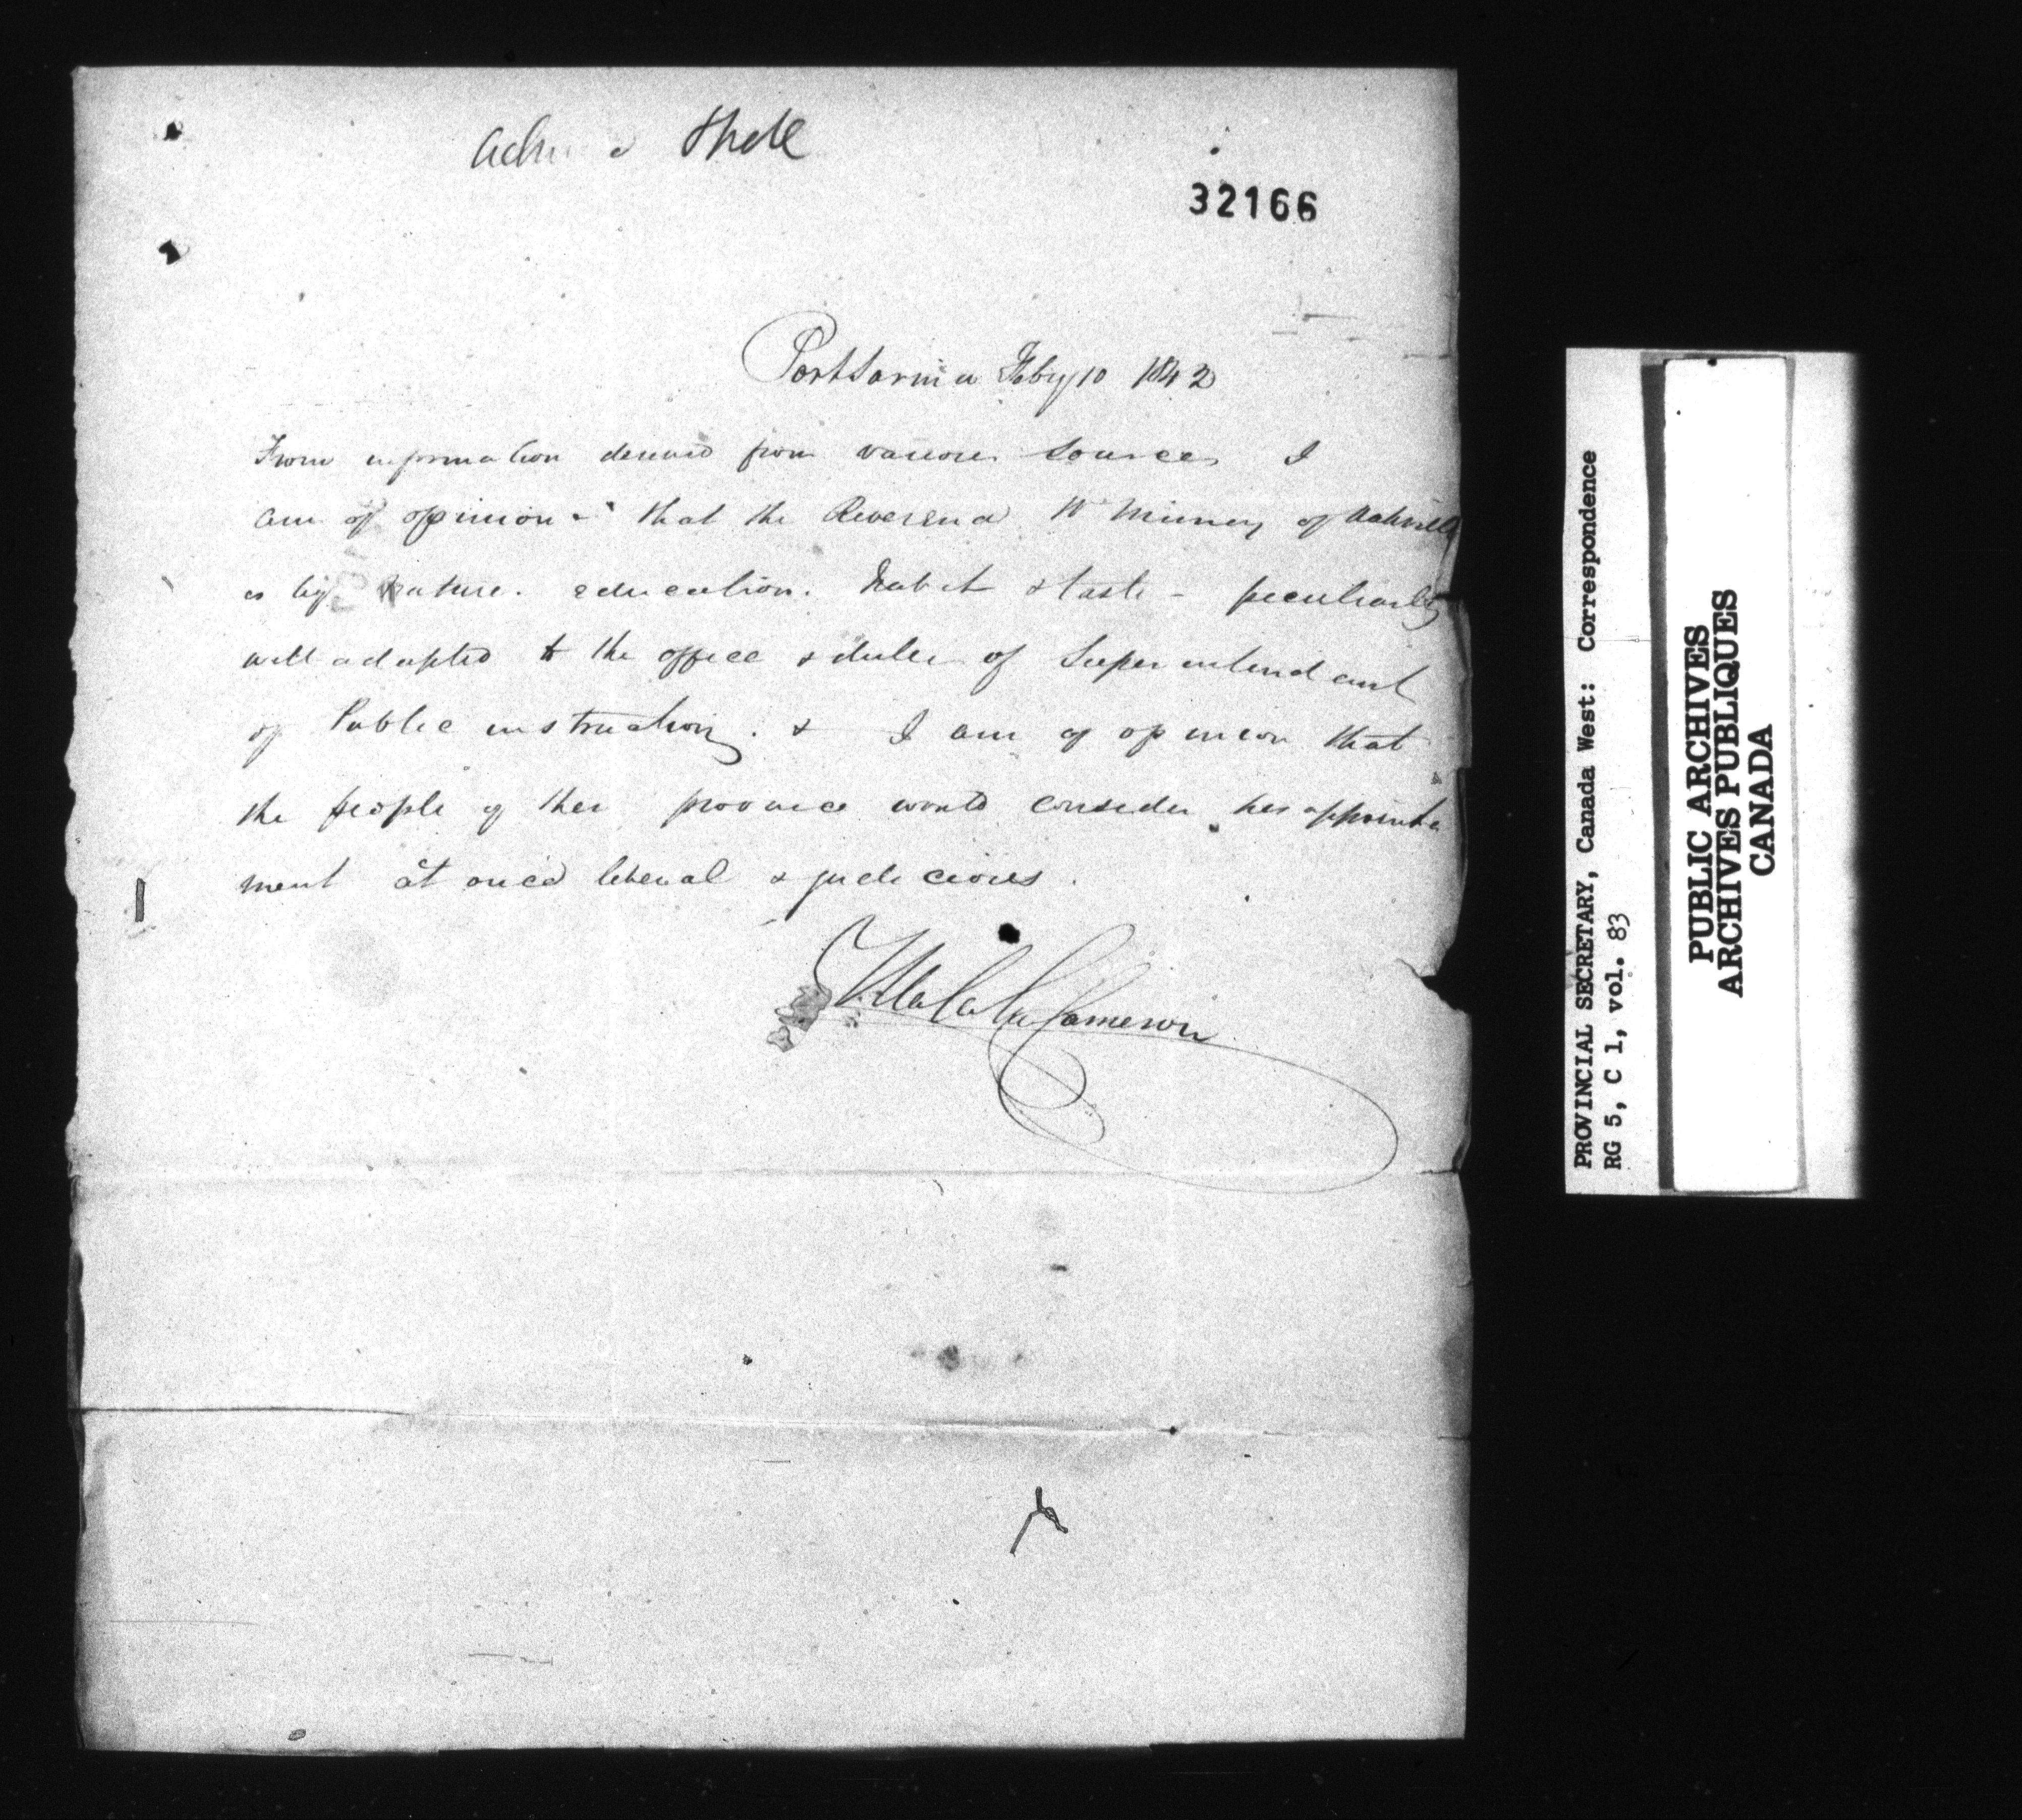 32166
Port Sarnia Feby 10 1842
From information derived from various sources I
am of opinion - that the Reverend W Murray of Oakville
is by nature. education. habit & taste - peculiarly
well adapted to the office & duties of Superintendant
of Public instruction. & I am of opinion that
the people of this province would consider his appoint
ment at once liberal & judicious.
Malcolm Cameron
PROVINCIAL SECRETARY, Canada West: Correspondence
RG 5, C 1, vol. 83
PUBLIC ARCHIVES
ARCHIVES PUBLIQUES
CANADA